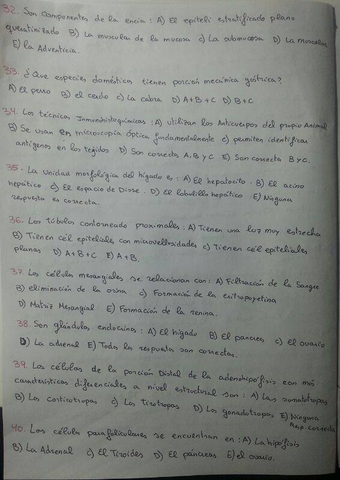 32. Son componentes de la encía: A) El epiteli estratificado plano
queratinizado B) La muscular de la mucosa c) La submucosa D) La muscular
E) La Adventicia.
33. ¿Que especies domésticas tienen porción mecánica gástrica?
A) El perro B) el cerdo c) La cabra D) A+B+C D) B+C
34. Las técnicas Inmunohistoquímicas: A) Utilizan los Anticuerpos del propio Animal
B) Se usan en microscopía óptica fundamentalmente c) permiten identificar
antígenos en los tejidos D) Son correctas A, B y C E) Son correcta B y C.
35. La unidad morfológica del hígado es: A) El hepatocito: B) El acino
hepático c) El espacio de Disse. D) El lobulillo hepático. E) Ninguna
respuesta es correcta.
36. Los túbulos contorneado proximales: A) Tienen una luz muy estrecha
B) Tienen cél epiteliales con microvellosidades c) Tienen cél epiteliales
planas D) A+B+C E) A+B.
37. Las células mesangiales se relacionan con: A) Filtración de la Sangre
B) eliminación de la orina c) Formación de la eritropoyetina
D) Matriz Mesangial E) Formación de la renina.
38. Son glándula endocrinas: A) El hígado B) El páncreas c) El ovario
D) La adrenal E) Todas las respuesta son correctas.
39. Las células de la porción Distal de la adenohipófisis con más
características diferenciales a nivel estructural son: A) Las somatotropas
B) Las corticotropas c) Las tirotropas D) Las gonadotropas E) Ninguna
resp. correcta
40. Las células parafoliculares se encuentran en: A) La hipófisis
B) La Adrenal c) El Tiroides D) El páncreas E) el ovario.